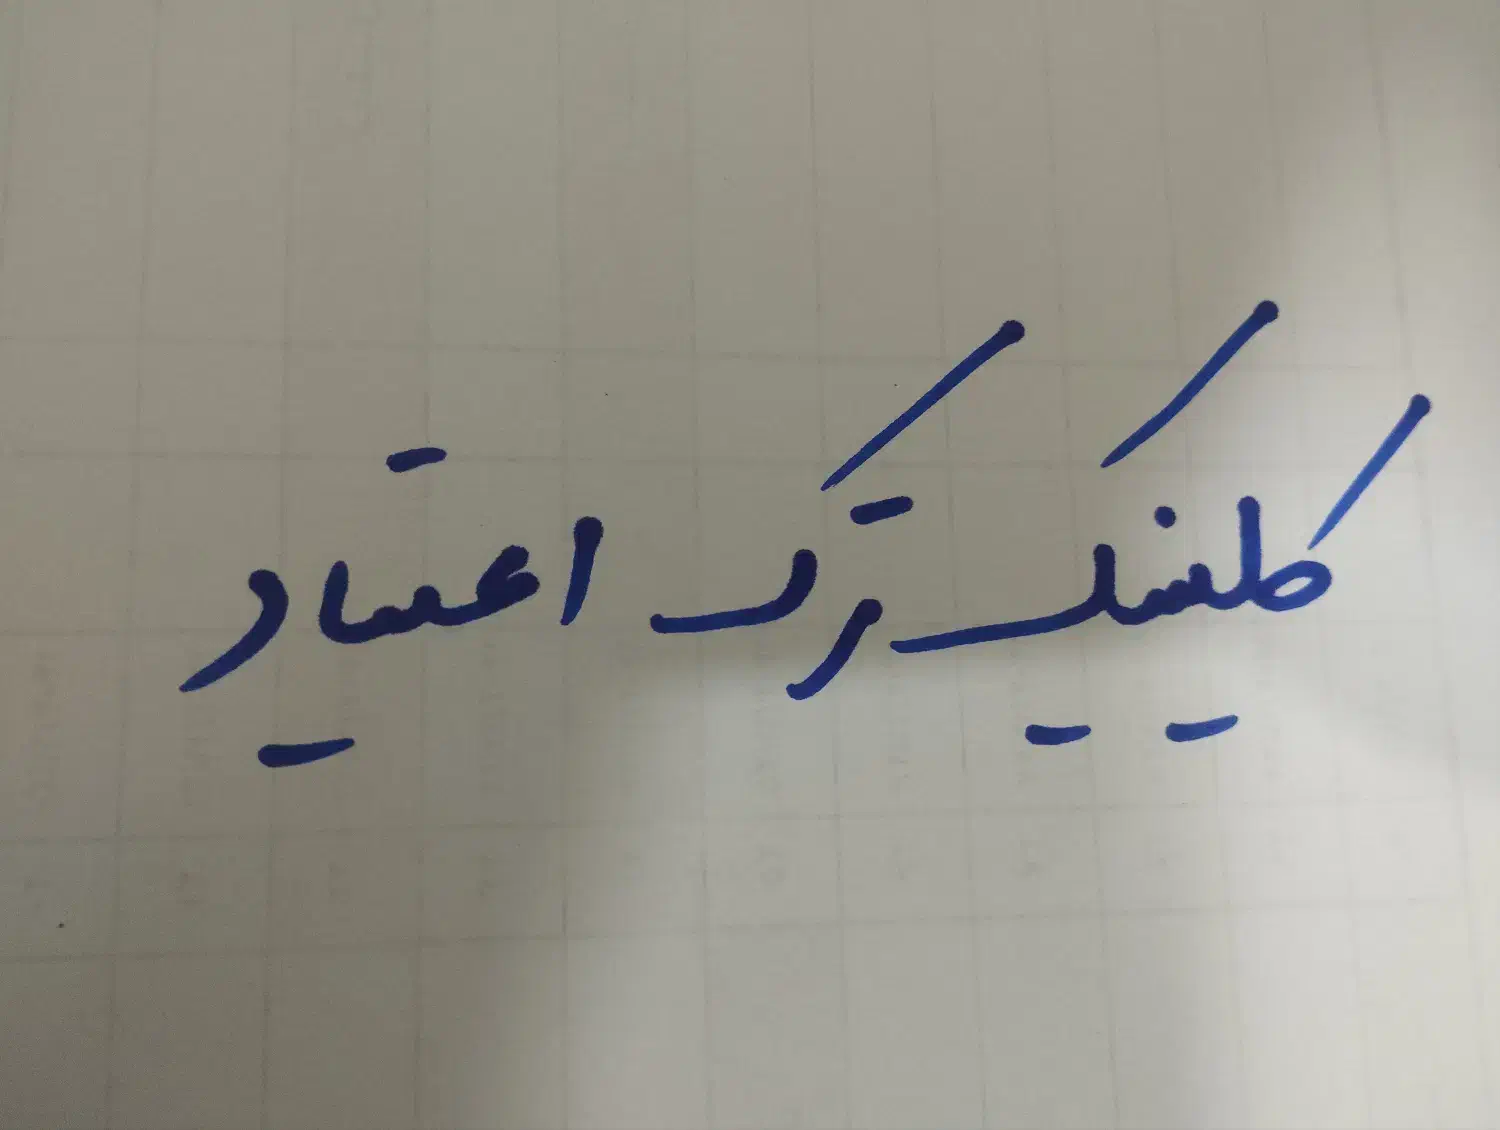 کلینیک ترک اعتیاد